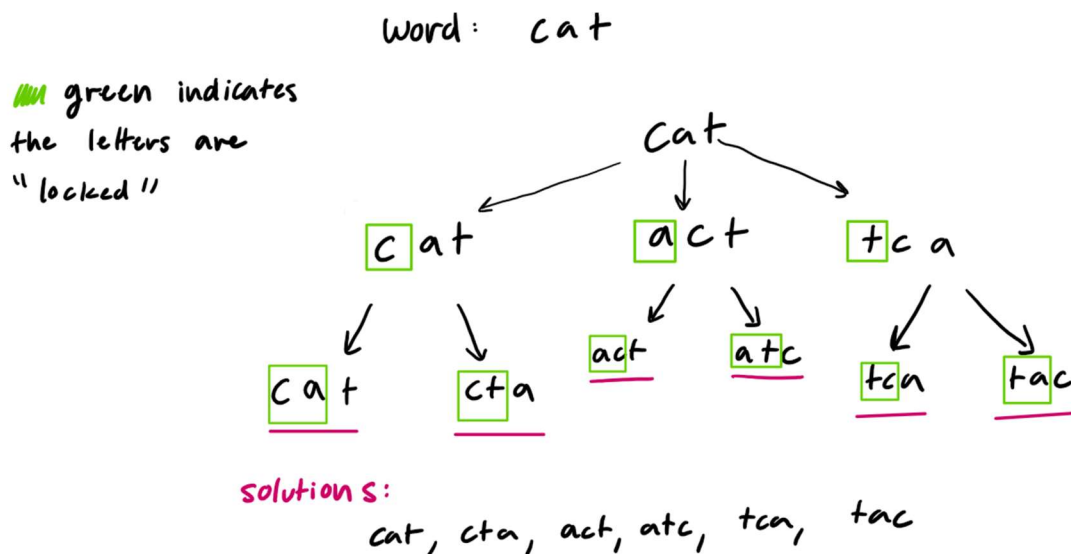 word: cat
green indicates
the letters are
"locked"
cat
cat act tca
cat cta act atc tca tac
solutions:
cat, cta, act, atc, tca, tac